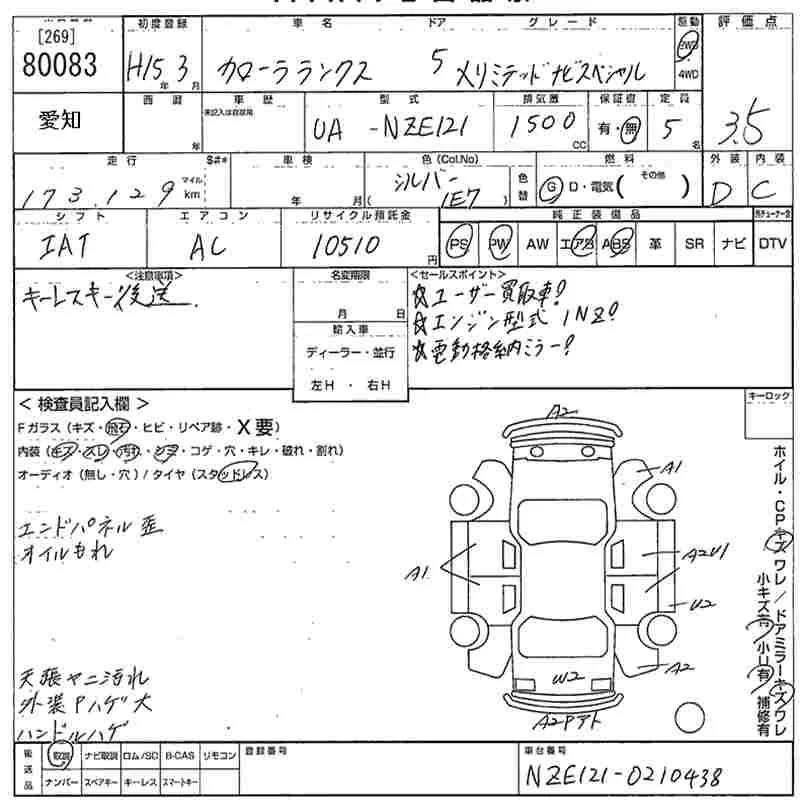 [269]
80083
初度登録
車名
ドア
グレード
駆動
評価点
H15年3月
カローラランクス
5
Xリミテッドナビスペシャル
2WD
4WD
3.5
愛知
西暦
車歴
型式
排気量
保証書
定員
年
※記入は自家用
UA -NZE121
1500
CC
有・無
5
名
走行
$#*
車検
色(Col.No)
色替
燃料
外装
内装
173,129
マイル
km
年 月
シルバー
(1E7)
G D・電気( その他 )
D
C
シフト
エアコン
リサイクル預託金
純正装備品
IAT
AC
10510
円
PS PW AW エアB ABS 革 SR ナビ DTV
<注意事項>
キーレスキー後送
名変期限
月 日
輸入車
ディーラー・並行
左H ・ 右H
<セールスポイント>
☆ユーザー買取車!
☆エンジン型式 1NZ!
☆電動格納ミラー!
<検査員記入欄>
Fガラス(キズ・飛石・ヒビ・リペア跡・X要)
内装(キズ・スレ・汚れ・シミ・コゲ・穴・キレ・破れ・割れ)
オーディオ(無し・穴)/タイヤ(スタッドレス)
エンドパネル歪
オイルもれ
天張ヤニ汚れ
外装Pハゲ大
ハンドルハゲ
キーロック
A2
A1
A1
A2U1
U2
A2
W2
A2Pアト
ホイル・CPキズ ワレ/ドアミラーキズ ワレ
小キズ有 小U有 補修有
後送品
取説 ナビ取説 ロム/SD B-CAS リモコン
ナンバー スペアキー キーレス スマートキー
登録番号
車台番号
NZE121-0210438